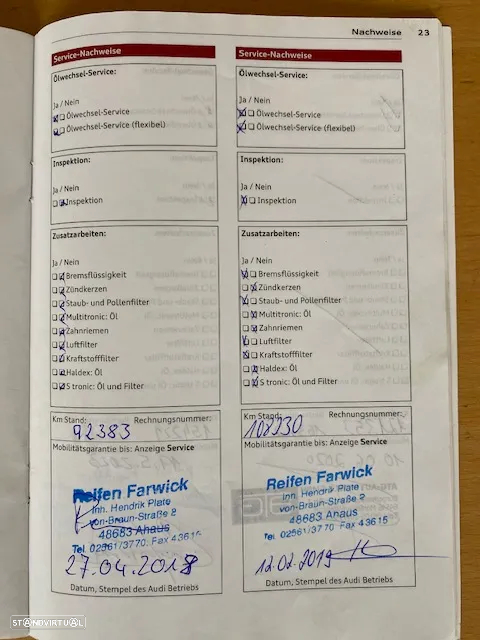 Nachweise 23
Service-Nachweise
Ölwechsel-Service:
Ja / Nein
Ölwechsel-Service
Ölwechsel-Service (flexibel)
Inspektion:
Ja / Nein
Inspektion
Zusatzarbeiten:
Ja / Nein
Bremsflüssigkeit
Zündkerzen
Staub- und Pollenfilter
Multitronic: Öl
Zahnriemen
Luftfilter
Kraftstofffilter
Haldex: Öl
S tronic: Öl und Filter
Km Stand: Rechnungsnummer:
92383
Mobilitätsgarantie bis: Anzeige Service
Reifen Farwick
Inh. Hendrik Plate
von-Braun-Straße 2
48683 Ahaus
Tel. 02561/3770. Fax 43615
27.04.2018
Datum, Stempel des Audi Betriebs
Service-Nachweise
Ölwechsel-Service:
Ja / Nein
Ölwechsel-Service
Ölwechsel-Service (flexibel)
Inspektion:
Ja / Nein
Inspektion
Zusatzarbeiten:
Ja / Nein
Bremsflüssigkeit
Zündkerzen
Staub- und Pollenfilter
Multitronic: Öl
Zahnriemen
Luftfilter
Kraftstofffilter
Haldex: Öl
S tronic: Öl und Filter
Km Stand: Rechnungsnummer:
Mobilitätsgarantie bis: Anzeige Service
Reifen Farwick
Inh. Hendrik Plate
von-Braun-Straße 2
48683 Ahaus
Tel. 02561/3770. Fax 43615
12.02.2019
Datum, Stempel des Audi Betriebs
STANDVIRTUAL